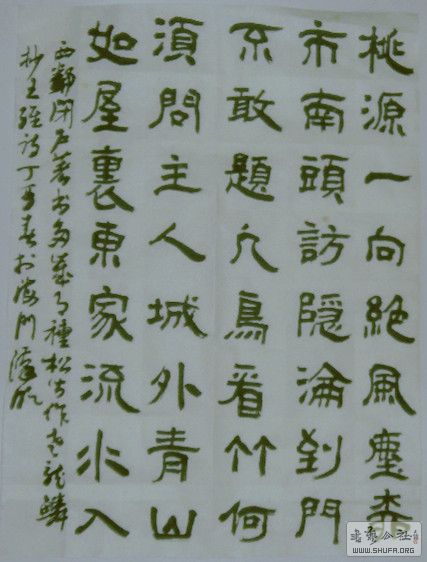 桃源一向絶風塵柳
市南頭訪隱淪到門
不敢題凡鳥看竹何
須問主人城外青山
如屋裏東家流水入
西鄰閉户著書多歲月種松皆作老龍鱗
抄王維詩丁亥春於海門
书法公社
WWW.SHUFA.ORG